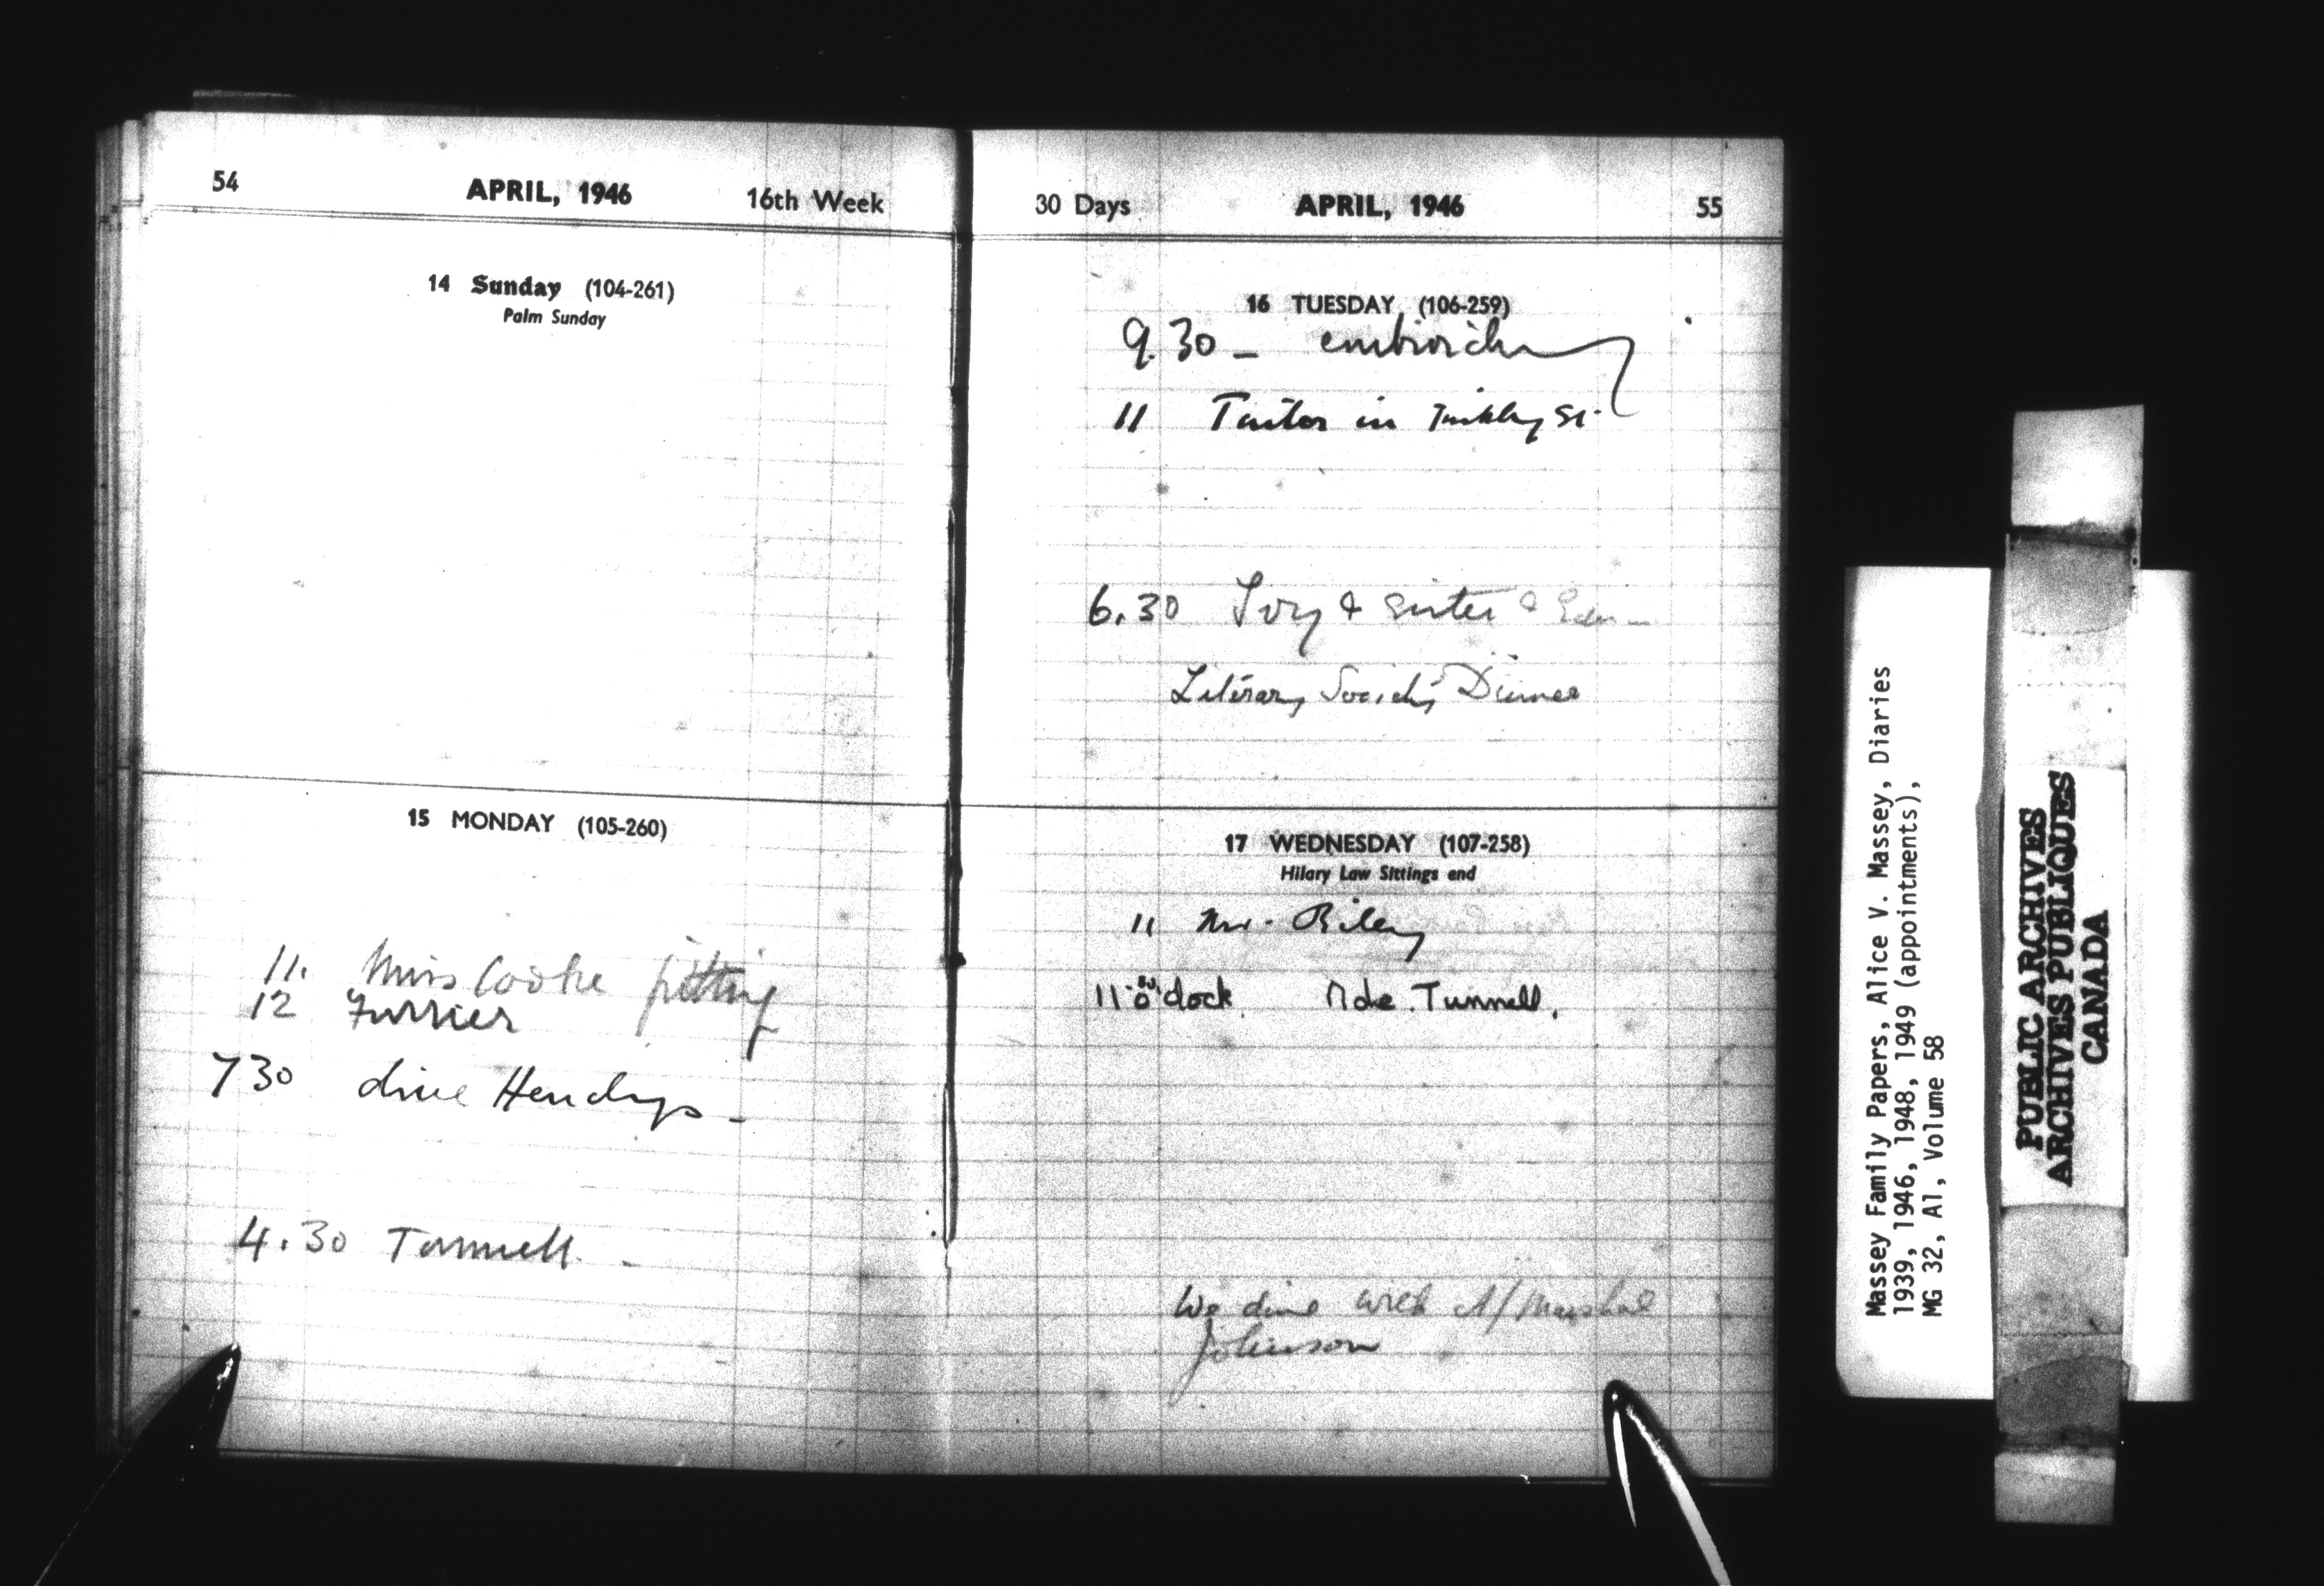 54 APRIL, 1946 16th Week
14 Sunday (104-261)
Palm Sunday
15 MONDAY (105-260)
11. Miss Cooke fitting
12 Furrier
7 30 dine Hendrys -
4.30 Tunnell. -
30 Days APRIL, 1946 55
16 TUESDAY (106-259)
9.30 -
11 Tailor in St.
6.30 Ivy & sister &
Literary Society Dinner
17 WEDNESDAY (107-258)
Hilary Law Sittings end
11 Mr. Riley
11 o'clock Tunnell.
We dine with A/Marshal
Johnson
Massey Family Papers, Alice V. Massey, Diaries
1939, 1946, 1948, 1949 (appointments),
MG 32, A1, Volume 58
PUBLIC ARCHIVES
ARCHIVES PUBLIQUES
CANADA